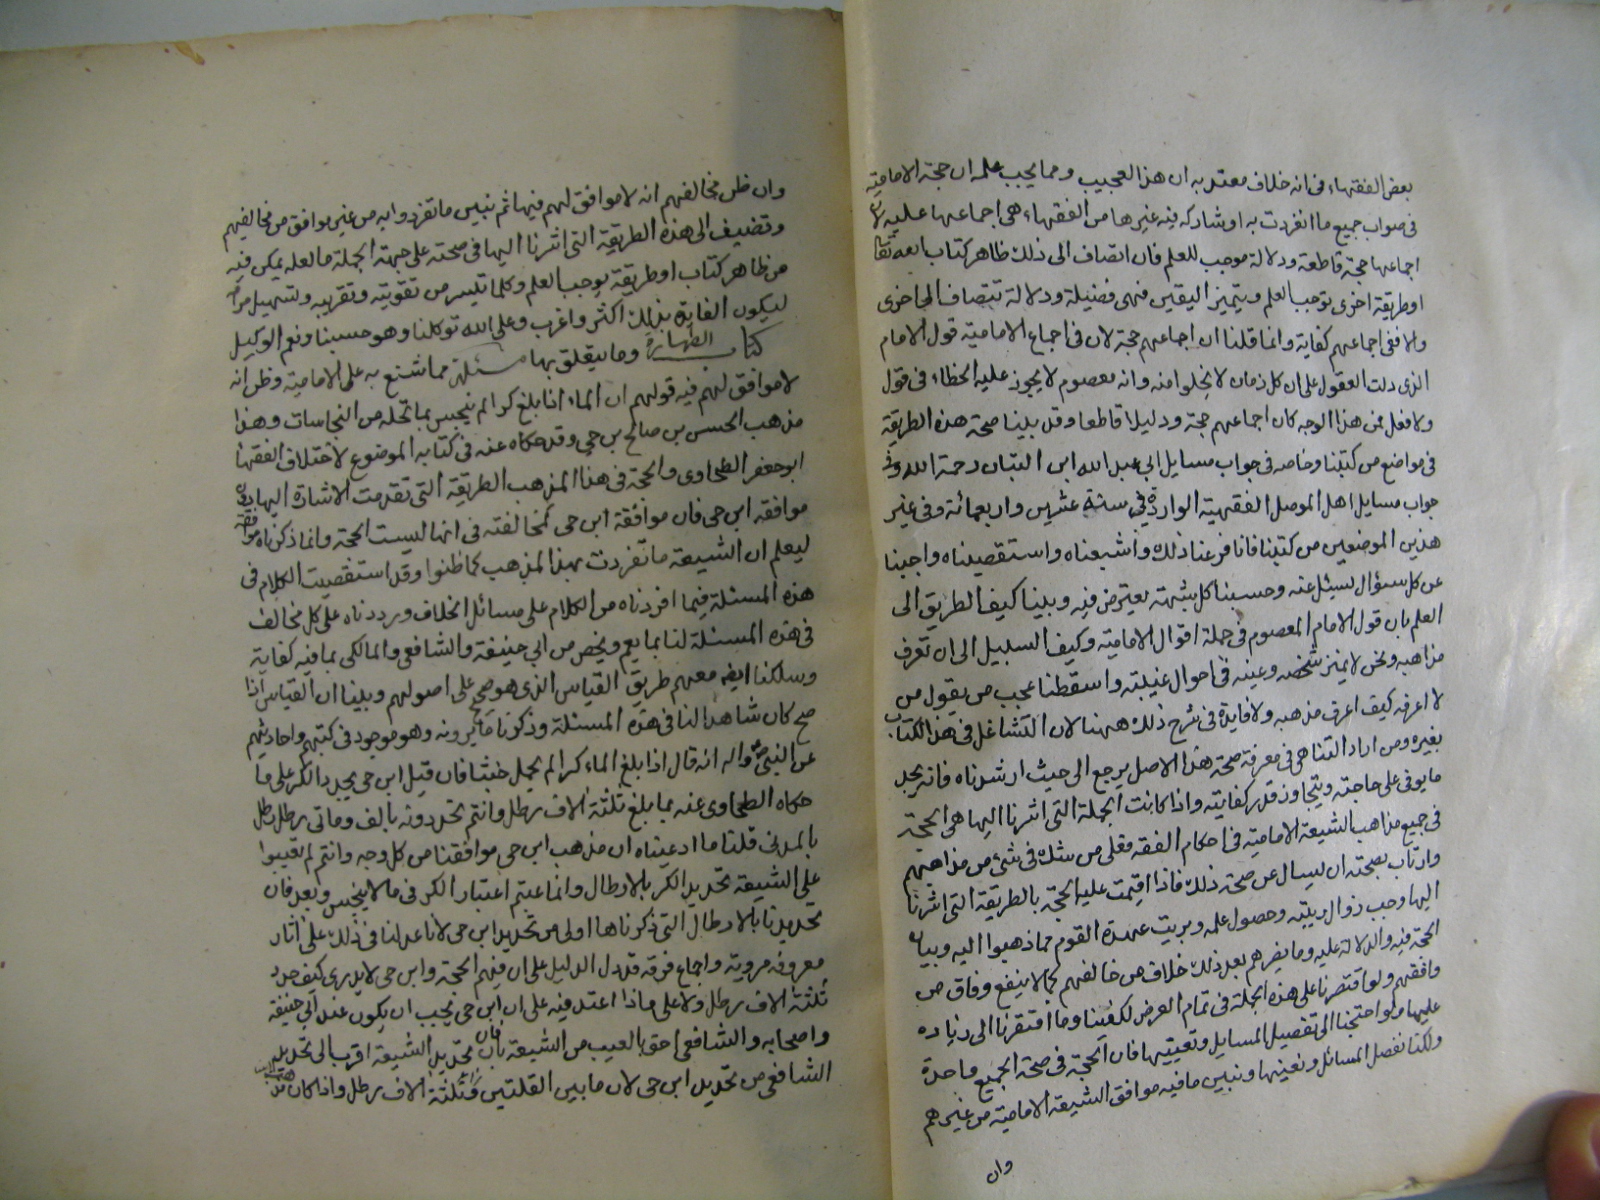 بعض الفقهاء فى انه خلاف معتد به ان هذا لعجيب ومما يجب علمه ان حجة الامامية
فى صواب جميع ما انفردت به او شاركه فيه غيرها من الفقهاء هى اجماعها عليه لان
اجماعها حجة قاطعة ودلالة موجبة للعلم فان انضاف الى ذلك ظاهر كتاب الله تعالى
او طريقة اخرى توجب العلم ويتميز اليقين فهى فضيلة ودلالة تنضاف الى اخرى
والا ففى اجماعهم كفاية وانما قلنا ان اجماعهم حجة لان فى اجماع الامامية قول الامام
الذى دلت العقول على ان كل زمان لا يخلوا منه وانه معصوم لا يجوز عليه الخطاء فى قول
ولا فعل فمن هذا الوجه كان اجماعهم حجة ودليلا قاطعا وقد بينا صحة هذه الطريقة
فى مواضع من كتبنا وخاصه فى جواب مسايل ابى عبد الله ابن التبان رحمة الله وفى
جواب مسايل اهل الموصل الفقهية الواردة فى سنة عشرين واربعمائة وفى غير
هذين الموضعين من كتبنا فانا فرعنا ذلك واشبعناه واستقصيناه واجبنا
عن كل سؤال يسئل عنه وحسبنا كل شبهة يعترض فيه وبينا كيف الطريق الى
العلم بان قول الامام المعصوم فى جملة اقوال الامامية وكيف السبيل الى ان تعرف
مذاهبه ونحن لا يميز شخصه وعينه فى احوال غيبته واسقطنا عجب من يقول من
لا اعرفه كيف اعرف مذهبه ولا فايدة فى شرح ذلك ههنا لان التشاغل فى هذا الكتاب
بغيره ومن اراد التناهى فى معرفة صحة هذا الاصل يرجع الى حيث ارشدناه فانه يجد
ما يوفى على حاجته ويتجاوز قدر كفايته واذا كانت الجملة التى اشرنا اليها هى الحجة
فى جميع مذاهب الشيعة الامامية فى احكام الفقه فعلى من شك فى شئ من مذاهبهم
وارتاب بصحته ان يسال عن صحة ذلك فاذا اقيمت عليه الحجة بالطريقة التى اشرنا
اليها وجب زوال ريبته وحصول علمه وبريت عهدة القوم مما ذهبوا اليه وبيان
الحجة فيه والدلالة عليه وما يضرهم بعد ذلك خلاف من خالفهم كما لا ينفع وفاق من
وافقهم ولو اقتصرنا على هذه الجملة فى تمام الغرض لكفينا وما افتقرنا الى زياده
عليها ولو احتجنا الى تفصيل المسايل وتعيينها فان الحجة فى صحة الجميع واحدة
ولكنا نفصل المسائل ونعينها ونبين ما فيه موافق الشيعة الامامية من غيرهم
وان
وان ظن مخالفهم انه لا موافق لهم فيها ثم نبين ما تفردوا به من غير موافق من مخالفيهم
وتضيف الى هذه الطريقة التى اشرنا اليها فى صحته على جهة الجملة ما لعله يمكن فيه
من ظاهر كتاب او طريقة يوجب العلم وكلما تيسر من تقويته وتقريبه وتسهيل مرامه
ليكون الفايدة بذلك اكثر واغرب وعلى الله توكلنا وهو حسبنا ونعم الوكيل
كتاب الطهارة وما يتعلق بها مسئلة مما شنع به على الامامية وظن انه
لا موافق لهم فيه قولهم ان الماء اذا بلغ كرا لم ينجس بما تحله من النجاسات وهذا
مذهب الحسن بن صالح بن حى وقد حكاه عنه فى كتابه الموضوع لاختلاف الفقهاء
ابو جعفر الطحاوى والحجة فى هذا المذهب الطريقة التى تقدمت الاشارة اليها دون
موافقه ابن حى فان موافقة ابن حى كمخالفته فى انها ليست الحجة وانما ذكرناه موافقة
ليعلم ان الشيعة ما تفردت بهذا المذهب كما ظنوا وقد استقصيت الكلام فى
هذه المسئلة فيما افردناه من الكلام على مسائل الخلاف ورددناه على كل مخالف
فى هذه المسئلة لنا بما يعم ويخص من ابى حنيفة والشافعى والمالكى بما فيه كفاية
وسلكنا ايضه معهم طريق القياس الذى هو صحيح على اصولهم وبينا ان القياس اذا
صح كان شاهدا لنا فى هذه المسئلة وذكرنا ما يرونه وهو موجود فى كتبهم واحاديثهم
عن النبى ص واله انه قال اذا بلغ الماء كرا لم يحمل خبثا فان قيل ابن حى يحد الكر على ما
حكاه الطحاوى عنه بما بلغ ثلثة الاف رطل وانتم تحددونه بالف وماتى رطل بطل
بالمدنى قلنا ما ادعيناه ان مذهب ابن حى موافقنا من كل وجه وانتم لم تعيبوا
على الشيعة تحديد الكر بالارطال وانما عبتم اعتبار الكر فى ما لا ينجس وبعد فان
تحديدنا بالارطال التى ذكرناها اولى من تحديد ابن حى لانا عولنا فى ذلك على اثار
معروفه مروية واجماع فرقه قد دل الدليل على ان فيهم الحجة وابن حى لا يدرى كيف حدد
ثلثة الاف رطل ولا على ماذا اعتمد فيه على ان ابن حى يجب ان يكون عند ابى حنيفة
واصحابه والشافعى احق بالعيب من الشيعة فان تحديد الشيعة اقرب الى تحديد
الشافعى من تحديد ابن حى لان ما بين القلتين وثلثة الاف رطل واذا كان